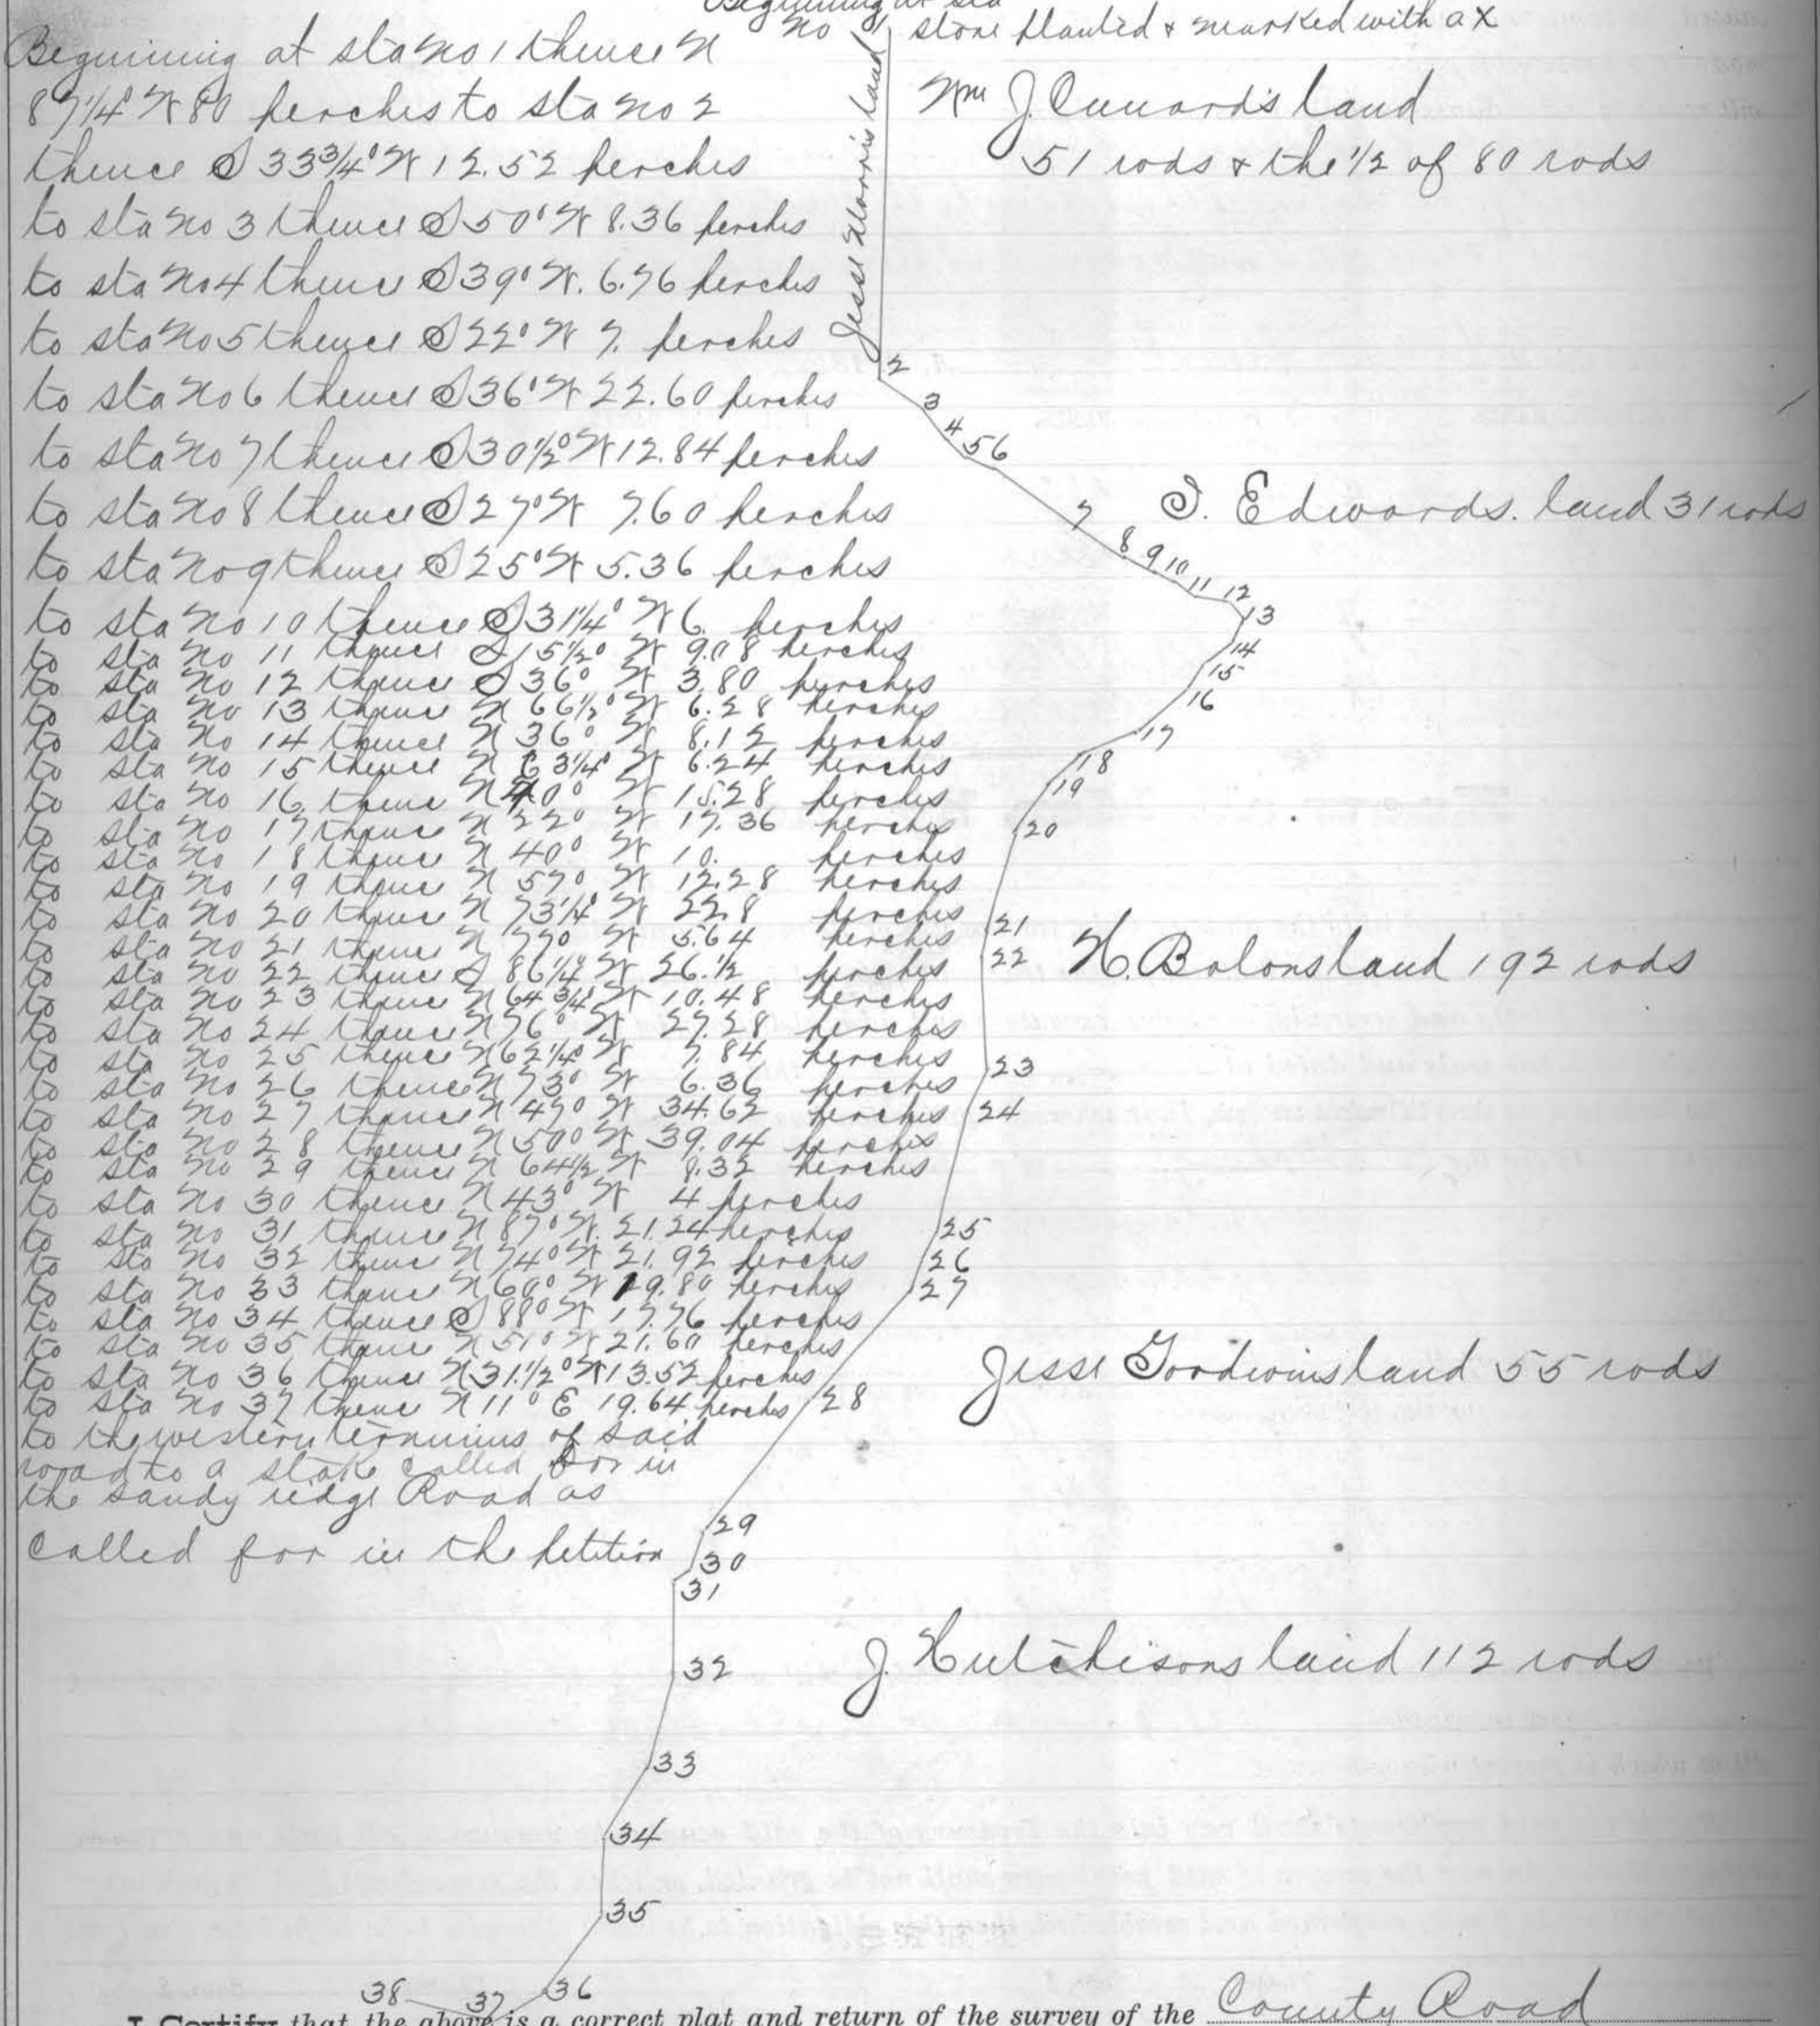 Beginning at sta
no 1 stone planted & marked with a X
Beginning at sta no 1 thence N
87 1/4° W 80 perches to sta no 2
thence S 33 3/4° W 12.52 perches
to sta no 3 thence S 50° W 8.36 perches
to sta no 4 thence S 39° W. 6.76 perches
to sta no 5 thence S 22° W 7. perches
to sta no 6 thence S 36° W 22.60 perches
to sta no 7 thence S 30 1/2° W 12.84 perches
to sta no 8 thence S 27° W 7.60 perches
to sta no 9 thence S 25° W 5.36 perches
to sta no 10 thence S 31 1/4° W 6. perches
to sta no 11 thence S 15 1/2° W 9.08 perches
to sta no 12 thence S 36° W 3.80 perches
to sta no 13 thence N 66 1/2° W 6.28 perches
to sta no 14 thence N 36° W 8.12 perches
to sta no 15 thence N 63 1/4° W 6.24 perches
to sta no 16 thence N 40° W 15.28 perches
to sta no 17 thence N 22° W 17.36 perches
to sta no 18 thence N 40° W 10. perches
to sta no 19 thence N 57° W 12.28 perches
to sta no 20 thence N 73 1/4° W 22.8 perches
to sta no 21 thence N 77° W 5.64 perches
to sta no 22 thence S 86 1/4° W 26.1/2 perches
to sta no 23 thence N 64 3/4° W 10.48 perches
to sta no 24 thence N 76° W 27.28 perches
to sta no 25 thence N 62 1/4° W 7.84 perches
to sta no 26 thence N 73° W 6.36 perches
to sta no 27 thence N 47° W 34.62 perches
to sta no 28 thence N 50° W 39.04 perches
to sta no 29 thence N 64 1/2 W 8.32 perches
to sta no 30 thence N 43° W 4 perches
to sta no 31 thence N 87° W. 21.24 perches
to sta no 32 thence N 74° W 21.92 perches
to sta no 33 thence N 60° W 19.80 perches
to sta no 34 thence S 88° W 17.76 perches
to sta no 35 thence N 51° W 21.60 perches
to sta no 36 thence N 31.1/2° W 13.52 perches
to sta no 37 thence N 11° E 19.64 perches
to the western terminus of said
road to a stake called for in
the sandy ridge Road as
called for in the petition
Jesse Morris land
Wm J. Cunard's land
51 rods & the 1/2 of 80 rods
2
3
4
5 6
7
S. Edwards. land 31 rods
8 9 10
11 12
13
14
15
16
17
18
19
20
21
22
H. Bolons land 192 rods
23
24
25
26
27
Jesse Goodwins land 55 rods
28
29
30
31
32
J. Hutchisons land 112 rods
33
34
35
36
37
38
I Certify that the above is a correct plat and return of the survey of the County Road